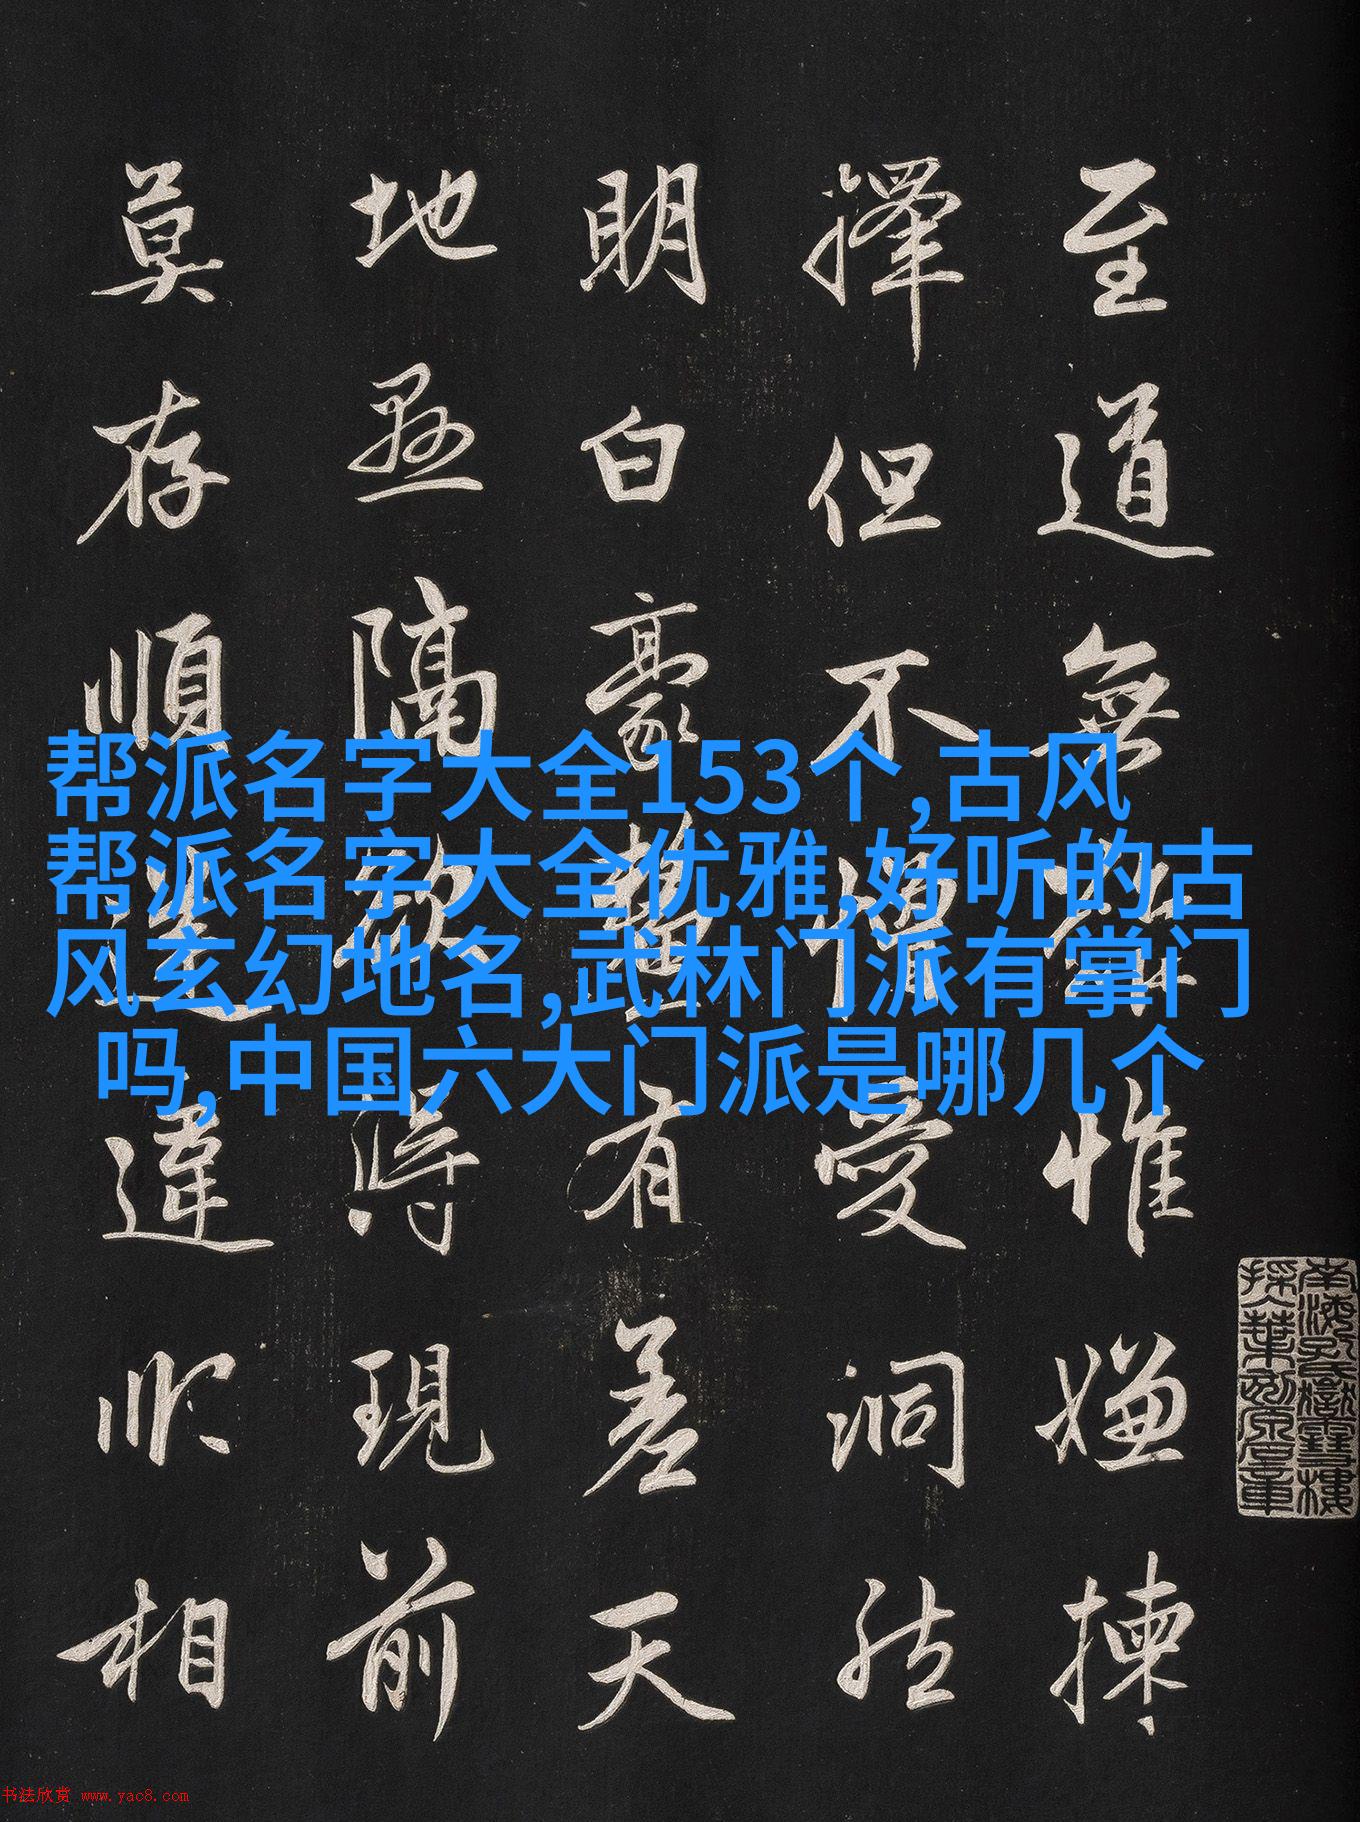 至道無難惟嫌揀
擇但不憎愛洞然
明白豪釐有差天
地懸隔欲得現前
莫存順逆違順相
帮派名字大全153个,古风
帮派名字大全优雅,好听的古
风玄幻地名,武林门派有掌门
吗,中国六大门派是哪几个
南海孔氏嶽雪樓
书法欣赏 www.yac8.com